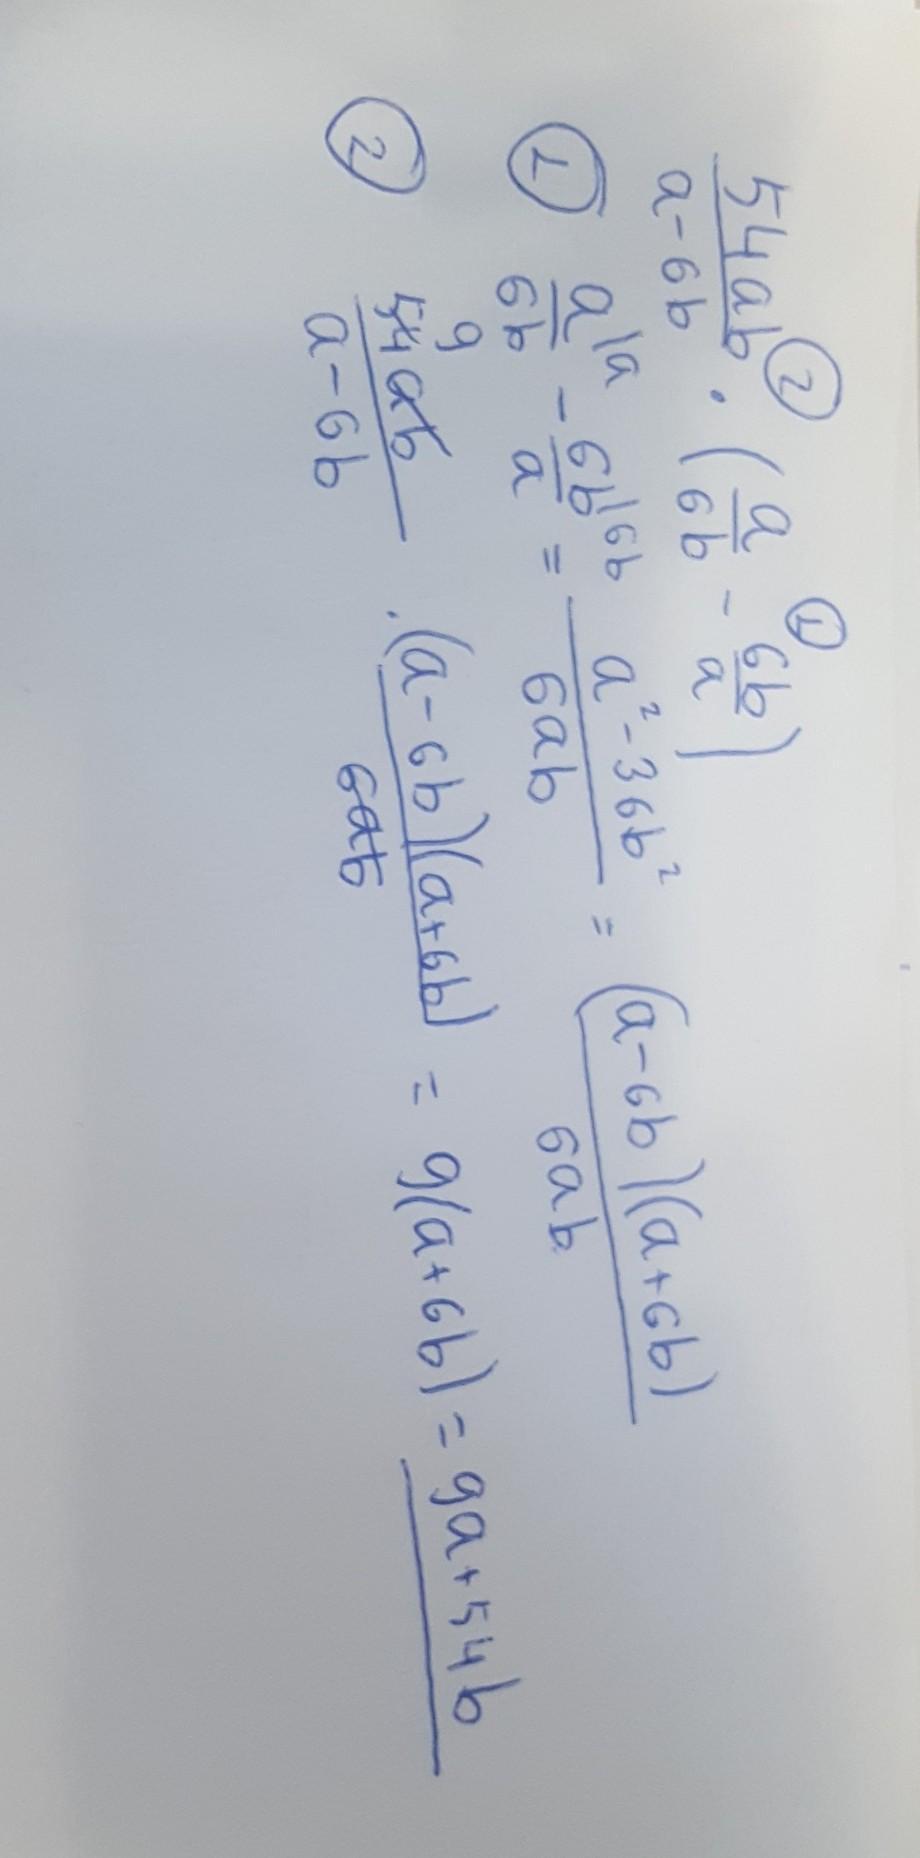 54ab/(a-6b) ② · (a/6b - 6b/a) ①
① a/6b |a - 6b/a |6b = (a²-36b²)/6ab = (a-6b)(a+6b)/6ab
② 9 54ab/(a-6b) · (a-6b)(a+6b)/6ab = 9(a+6b) = 9a+54b